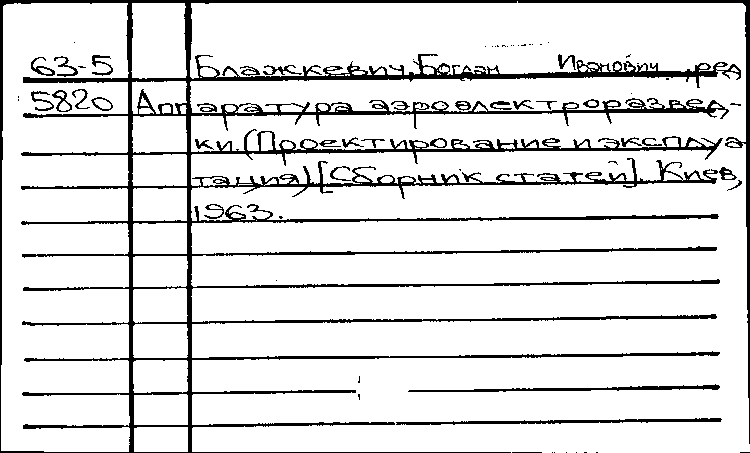 63-5 Блажкевич, Богдан Иванович, ред
5820 Аппаратура аэроэлектроразвед-
ки. (Проектирование и эксплуа
тация) [Сборник статей]. Киев,
1963.